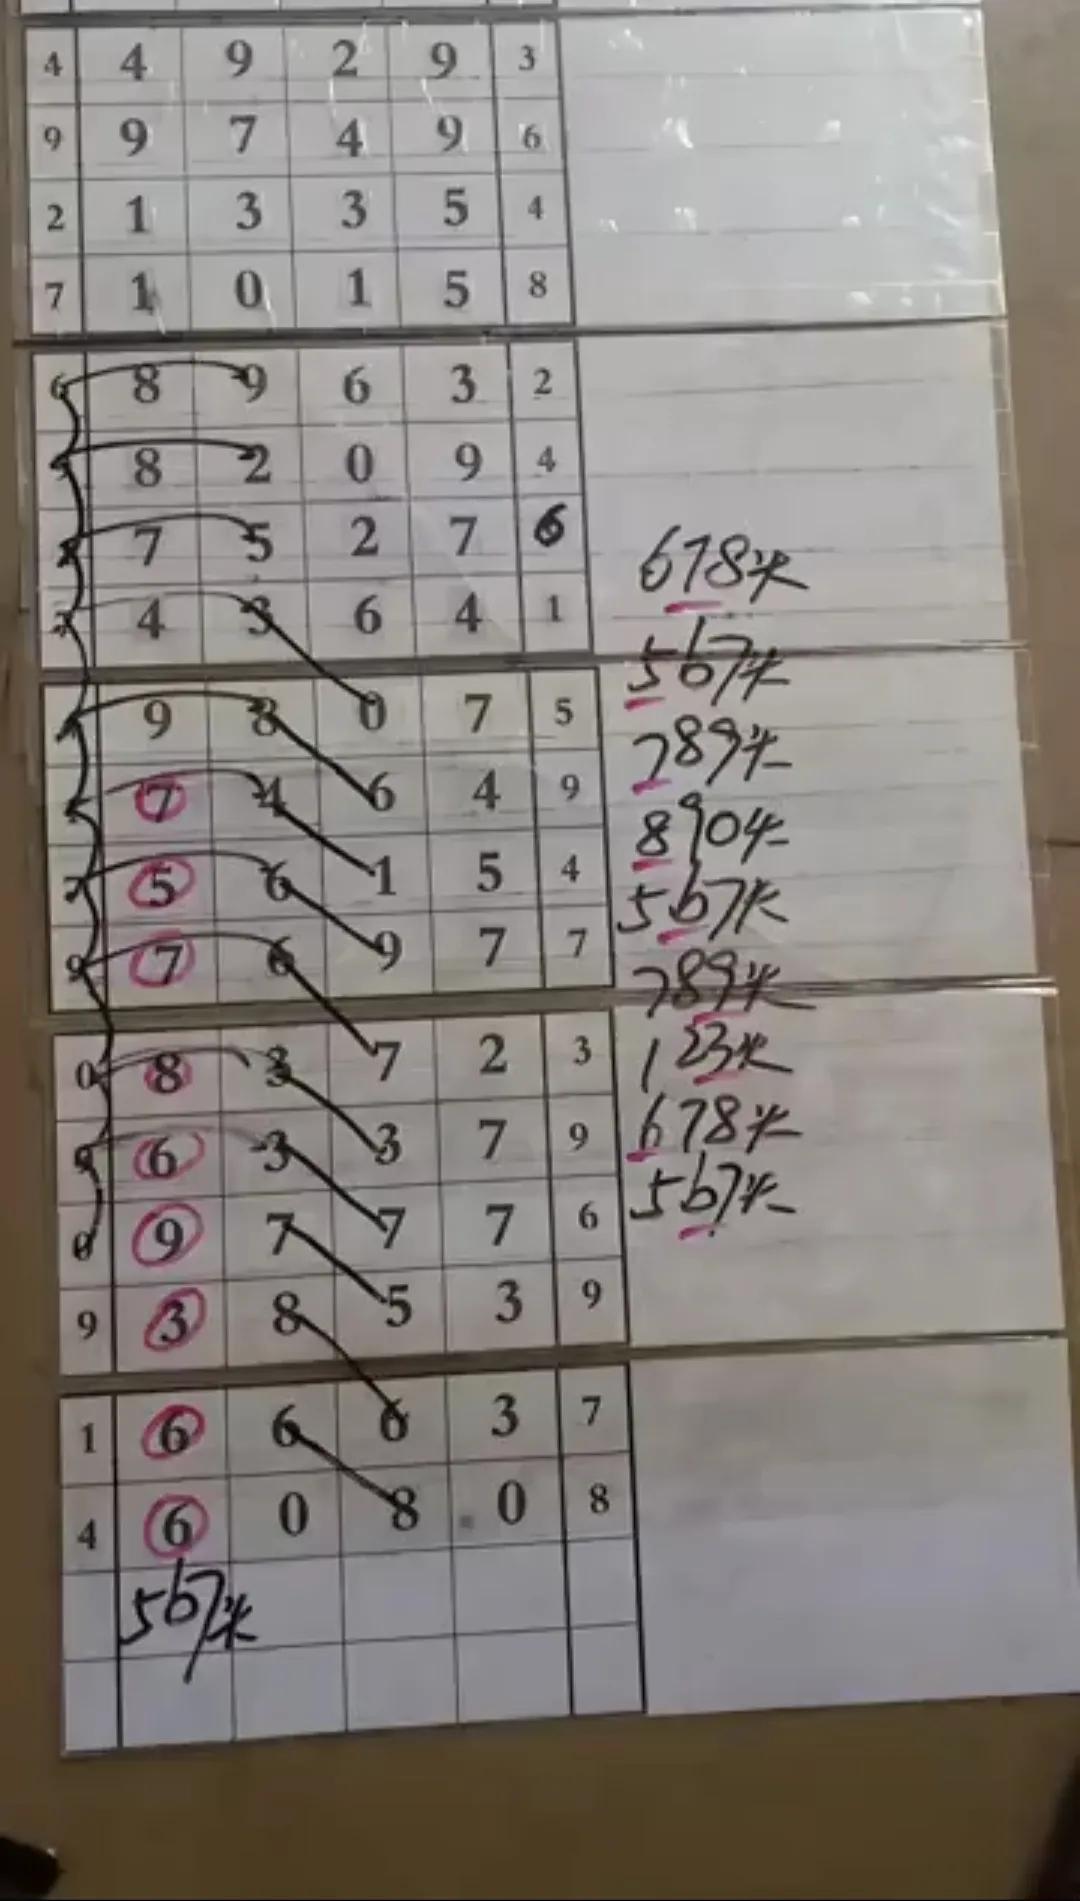 4 4 9 2 9 3
9 9 7 4 9 6
2 1 3 3 5 4
7 1 0 1 5 8
6 8 9 6 3 2
8 2 0 9 4
7 5 2 7 6
4 3 6 4 1
678米
567米
9 8 0 7 5
7 4 6 4 9
5 6 1 5 4
9 7 6 9 7 7
789米
890米
567米
789米
0 8 3 7 2 3
9 6 3 3 7 9
0 9 7 7 7 6
9 3 8 5 3 9
123米
678米
567米
1 6 6 6 3 7
4 6 0 8 0 8
567米